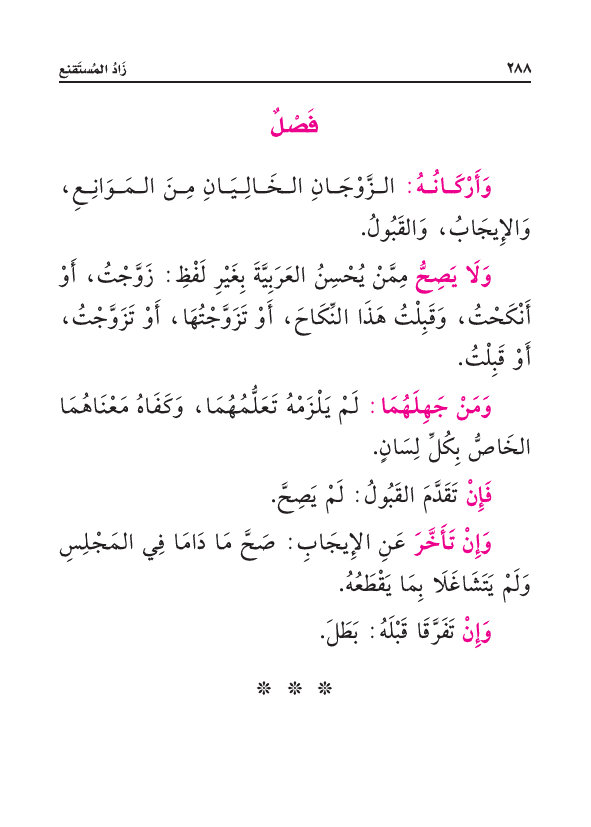 ٢٨٨ زَادُ المُستَقنِع
فَصْلٌ
وَأَرْكَـانُـهُ: الـزَّوْجَـانِ الـخَـالِـيَـانِ مِـنَ الـمَـوَانِـعِ،
وَالإِيجَابُ، وَالقَبُولُ.
وَلَا يَصِحُّ مِمَّنْ يُحْسِنُ العَرَبِيَّةَ بِغَيْرِ لَفْظِ: زَوَّجْتُ، أَوْ
أَنْكَحْتُ، وَقَبِلْتُ هَذَا النِّكَاحَ، أَوْ تَزَوَّجْتُهَا، أَوْ تَزَوَّجْتُ،
أَوْ قَبِلْتُ.
وَمَنْ جَهِلَهُمَا: لَمْ يَلْزَمْهُ تَعَلُّمُهُمَا، وَكَفَاهُ مَعْنَاهُمَا
الخَاصُّ بِكُلِّ لِسَانٍ.
فَإِنْ تَقَدَّمَ القَبُولُ: لَمْ يَصِحَّ.
وَإِنْ تَأَخَّرَ عَنِ الإِيجَابِ: صَحَّ مَا دَامَا فِي المَجْلِسِ
وَلَمْ يَتَشَاغَلَا بِمَا يَقْطَعُهُ.
وَإِنْ تَفَرَّقَا قَبْلَهُ: بَطَلَ.